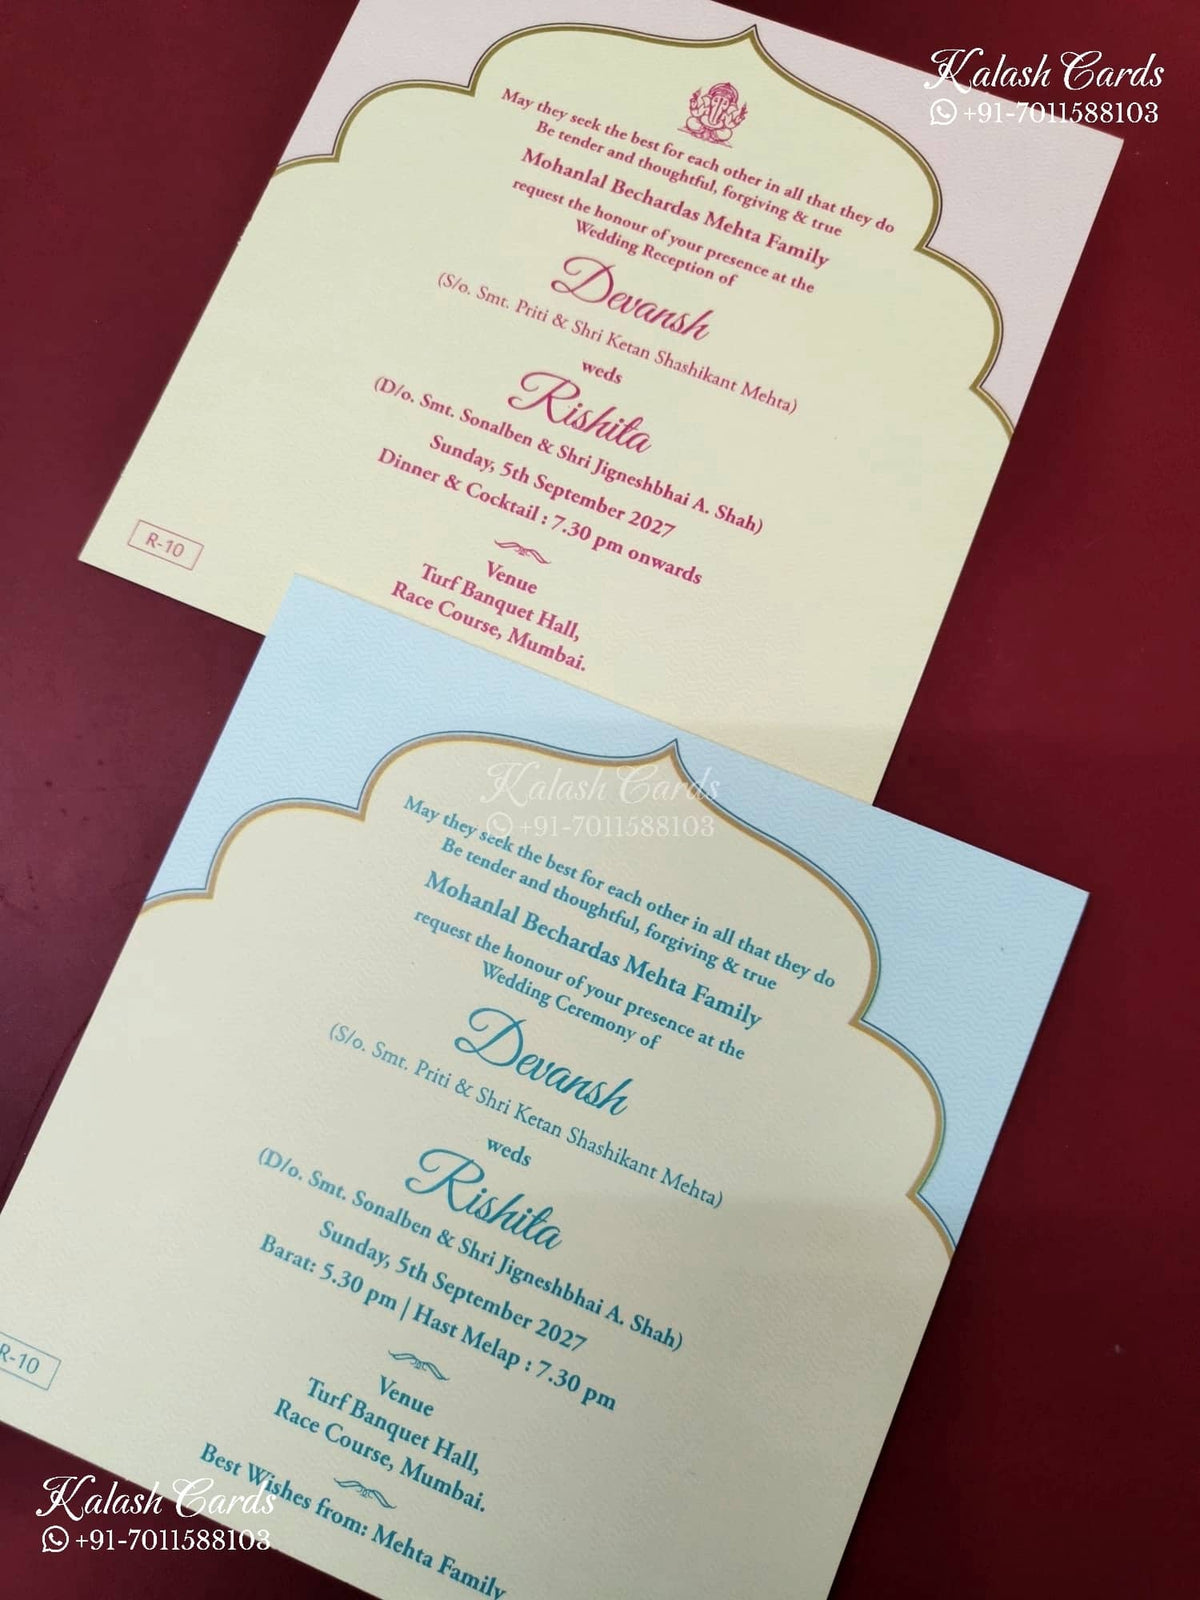 Kalash Cards
+91-7011588103
May they seek the best for each other in all that they do
Be tender and thoughtful, forgiving & true
Mohanlal Bechardas Mehta Family
request the honour of your presence at the
Wedding Reception of
Devansh
(S/o. Smt. Priti & Shri Ketan Shashikant Mehta)
weds
Rishita
(D/o. Smt. Sonalben & Shri Jigneshbhai A. Shah)
Sunday, 5th September 2027
Dinner & Cocktail : 7.30 pm onwards
Venue
Turf Banquet Hall,
Race Course, Mumbai.
R-10
Kalash Cards
+91-7011588103
May they seek the best for each other in all that they do
Be tender and thoughtful, forgiving & true
Mohanlal Bechardas Mehta Family
request the honour of your presence at the
Wedding Ceremony of
Devansh
(S/o. Smt. Priti & Shri Ketan Shashikant Mehta)
weds
Rishita
(D/o. Smt. Sonalben & Shri Jigneshbhai A. Shah)
Sunday, 5th September 2027
Barat: 5.30 pm | Hast Melap : 7.30 pm
Venue
Turf Banquet Hall,
Race Course, Mumbai.
Best Wishes from: Mehta Family
R-10
Kalash Cards
+91-7011588103